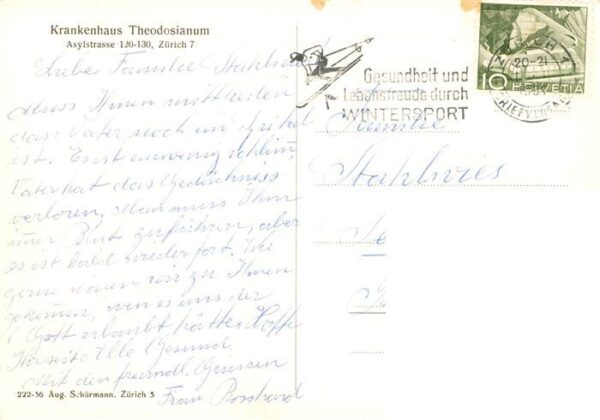 Krankenhaus Theodosianum
Asylstrasse 120-130, Zürich 7
Liebe Familie
Muss Ihnen mitteilen
dass Vater noch im Spital
ist. Es ist ein wenig schlim,
Vater hat das Gedächniss
verloren. Mann muss Ihm
imer Blut zuführen, aber
es ist bald wieder fort. Wie
gerne wären wir zu Ihnen
gekomen, wen es uns der
l. Gott erlaubt hätte. Hoffe
Ihrseits Alle Gesund.
Mit den freundl. Grüssen
Frau
222-56 Aug. Schürmann, Zürich 5
Gesundheit und
Lebensfreude durch
WINTERSPORT
20-21
BRIEFVERSAND
10 HELVETIA
Familie